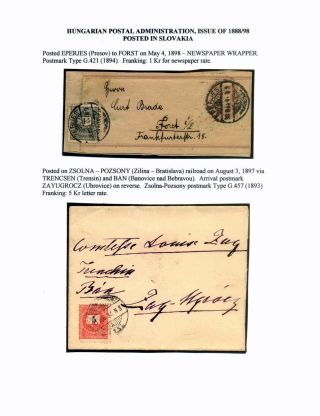 HUNGARIAN POSTAL ADMINISTRATION, ISSUE OF 1888/98
POSTED IN SLOVAKIA
Posted EPERJES (Presov) to FORST on May 4, 1898 – NEWSPAPER WRAPPER.
Postmark Type G.421 (1894). Franking: 1 Kr for newspaper rate.
Herrn
Curt Brade
Forst i/L
Frankfurterstr. 18.
Posted on ZSOLNA – POZSONY (Zilina – Bratislava) railroad on August 3, 1897 via
TRENCSEN (Trensin) and BAN (Banovice nad Bebravou). Arrival postmark
ZAYUGROCZ (Uhrovice) on reverse. Zsolna-Pozsony postmark Type G.457 (1893)
Franking: 5 Kr letter rate.
Comtesse Louise Zay
Trenchin
Bán
Zay-Ugrócz
5